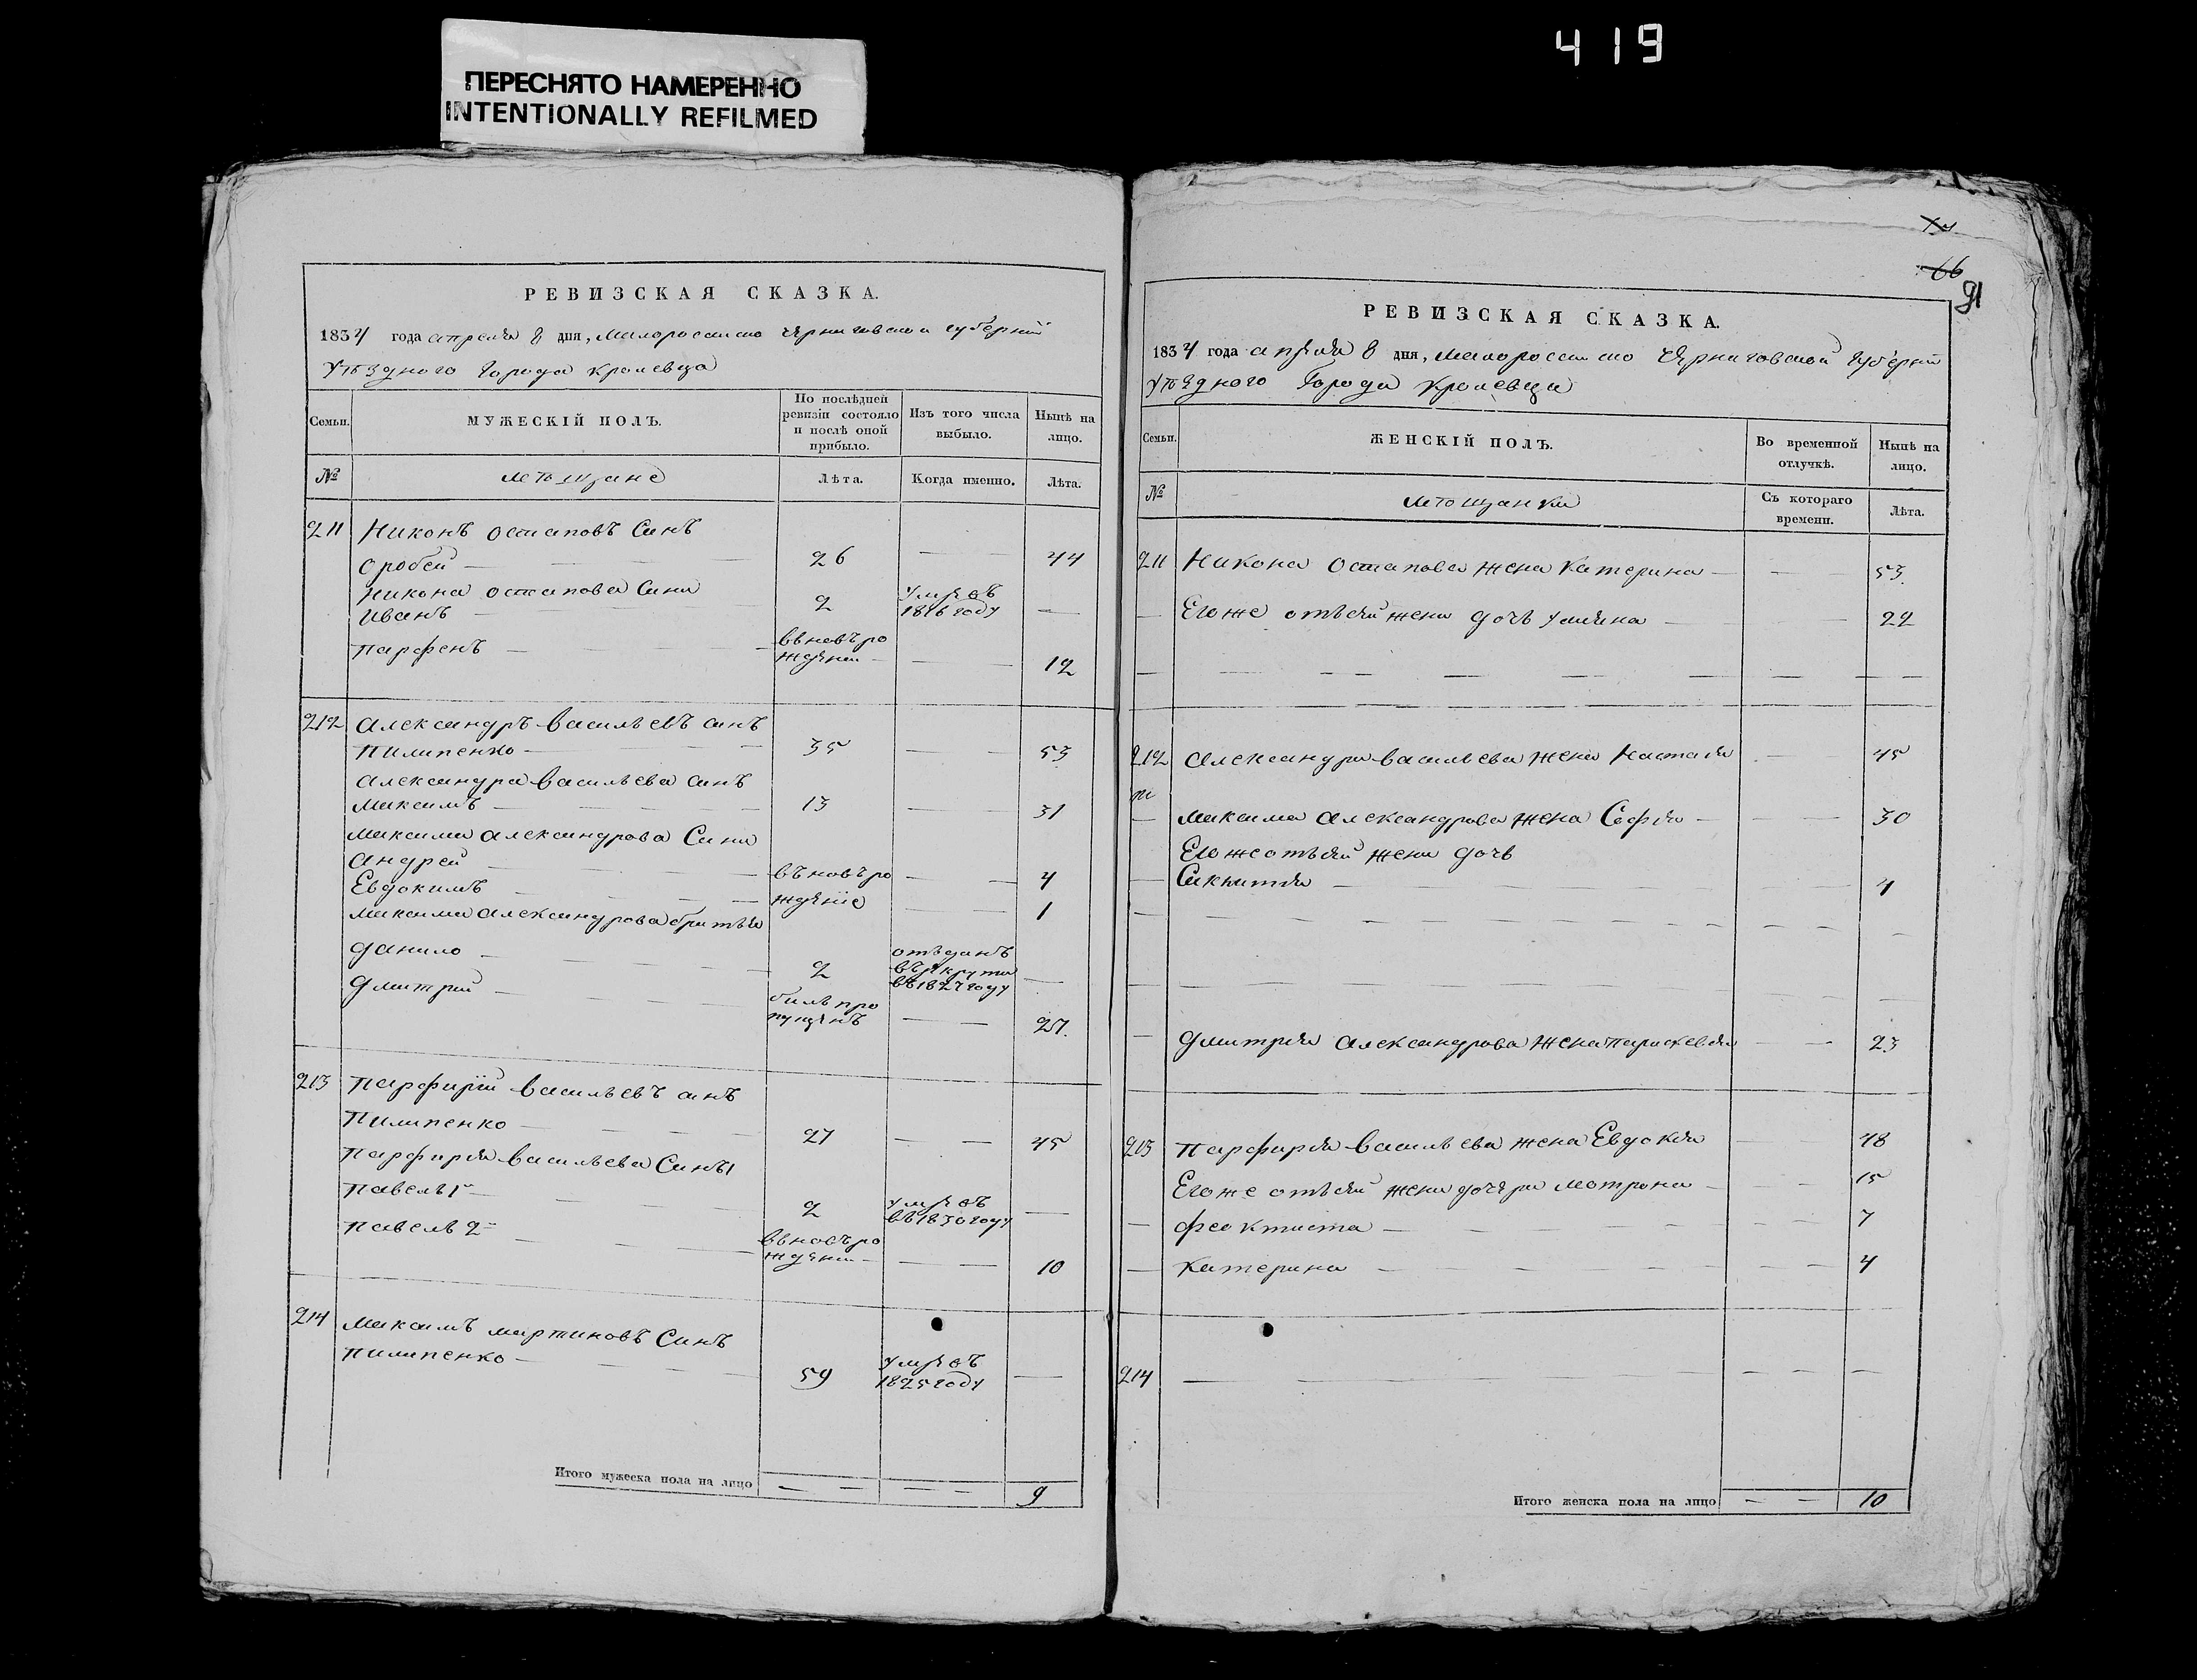 419
ПЕРЕСНЯТО НАМЕРЕННО
INTENTIONALLY REFILMED
РЕВИЗСКАЯ СКАЗКА.
1834 года апреля 8 дня, Малороссийско Черниговской губерніи
Уѣзднаго города Кролевца
Семьи.
МУЖЕСКІЙ ПОЛЪ.
По послѣдней ревизіи состояло и послѣ оной прибыло.
Изъ того числа выбыло.
Нынѣ на лицо.
№
мѣщане
Лѣта.
Когда именно.
Лѣта.
211 Никонъ остаповъ Синъ
оробей — 26 — 44
Никона остапова Сини
Иванъ — 2 умре въ 1816 году —
Парфенъ — вновъ рождени — — 12
212 Александръ Васильевъ синъ
Пилипенко — 35 — 53
Александра Васильева синъ
Максимъ — 13 — 31
Максима Александрова Сини
Андрей — въновъ ро — 4
Евдокимъ — жденіе — 1
Максима Александрова братья
Данило — 2 отъданъ въ рекрути въ 1827 году —
Дмитрий — билъ пропущенъ — 27.
213 Парфирій Васильевъ синъ
Пилипенко — 27 — 45
Парфирия Васильева Синъ
Павелъ 1й — 2 умре въ 1830 году —
Павелъ 2й — вновъ рождени — — 10
214 Максимъ мартиновъ Синъ
Пилипенко — 59 умре въ 1825 году —
Итого мужеска пола на лицо — — 9
66
91
РЕВИЗСКАЯ СКАЗКА.
1834 года апреля 8 дня, Малороссийско Черниговской Губерніи
Уѣзднаго Города Кролевца
Семьи.
ЖЕНСКІЙ ПОЛЪ.
Во временной отлучкѣ.
Нынѣ на лицо.
№
мѣщанки
Съ котораго времени.
Лѣта.
211 Никона остапова жена Катерина — 53.
— Его же отъсей жени дочъ Улияна — 22
212 Александра Васильева жена Настасия — 45
— Максима Александрова жена София — 30
Его же отъсей жени дочъ
— — 4
— Дмитрия Александрова жена Параскевия — 23
213 Парфирия Васильева жена Евдокия — 48
Его же отъсей жени дочери Мотрона — 15
— Феоктиста — 7
— Катерина — 4
214 — — —
Итого женска пола на лицо — — 10